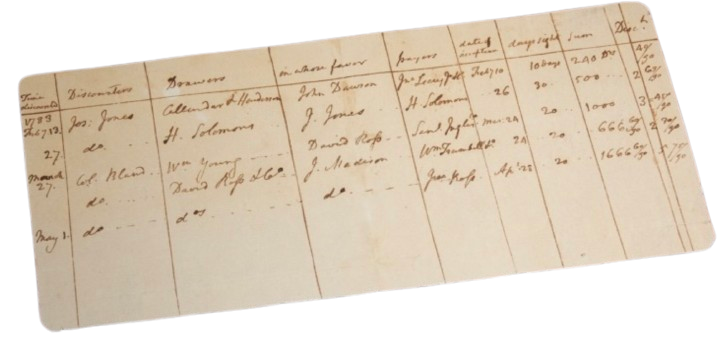 Time discounted Discounters Drawers in whose favor payers date of acception days sight Sum Disc.t
1783 Feb. 12. Jos: Jones Callender & Henderson John Dawson Feb. 10 10 days 240
27. do H. Solomons J. Jones H Solomon 26 30 500 2
March 27. Col. Bland Wm Young David Ross Mar. 24 20 1000 3
do David Ross & Co. J. Madison Wm 24 20 666 60/90 2
May 1. do dos do Jno Ross Apl. 23 20 1666 60/90 5